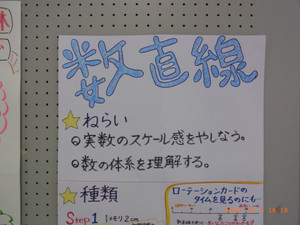 数直線
☆ねらい
◎実数のスケール感をやしなう。
◎数の体系を理解する。
☆種類
Step1 1メモリ2cm
ローテーションカードの
タイムを見るのにも…